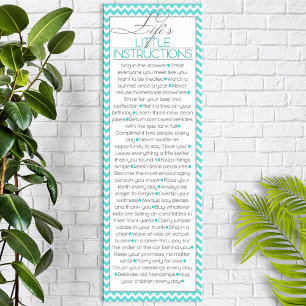 Life's
LITTLE
INSTRUCTIONS
Sing in the shower • Treat
everyone you meet like you
want to be treated • Watch a
sunrise once a year • Never
refuse homemade brownies •
Strive for your best, not
perfection • Plant a tree on your
birthday • Learn three new clean
jokes • Return borrowed vehicles
with the gas tank full •
Compliment two people every
day • Never waste an
opportunity to say "I love you" •
Leave everything a little better
than you found it • Keep things
simple • Relish small pleasures •
Become the most encouraging
person you know • Floss your
teeth everyday • Always be
eager to forgive • Overtip your
waitress • Always say please
and thank you • Buy whatever
kids are selling on card tables in
their front yards • Carry jumper
cables in your trunk • Sing in a
choir • Wave at kids on school
buses • In a drive-thru pay for
the order of the car behind you •
Keep your promises, no matter
what • Marry only for love •
Count your blessings every day
• Rekindle old friendships • Hug
your children every day •